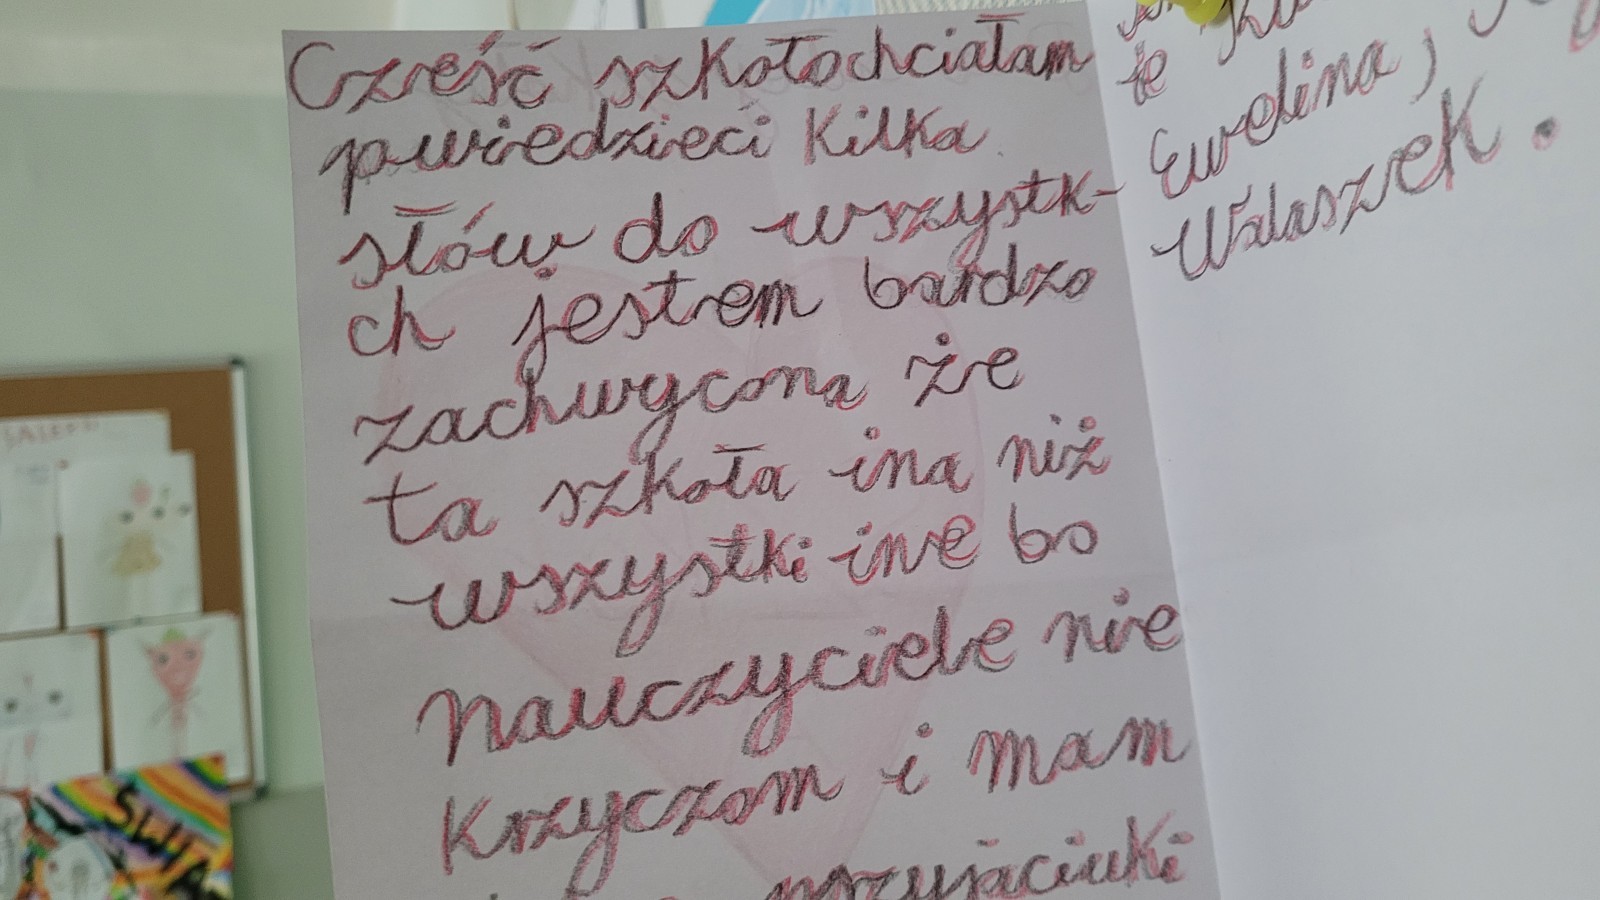 Cześć szkołochciałam
pwiedzieci kilka
słów do wszystk-
ch jestem bardzo
zachwycona że
ta szkoła ina niż
wszystki ine bo
nauczyciele nie
krzyczom i mam
przyjaciułki
że
Ewelina,
Walaszek.